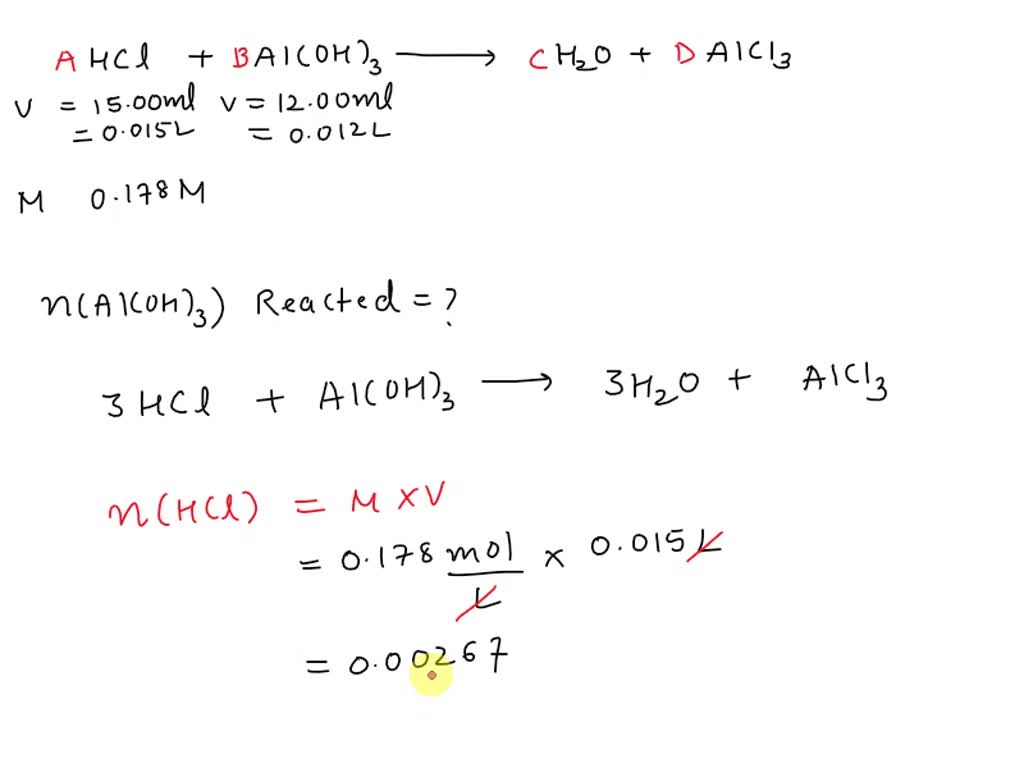 A HCl + B Al(OH)₃ ⟶ C H₂O + D AlCl₃
V = 15.00ml V = 12.00ml
= 0.015L = 0.012L
M 0.178M
n(Al(OH)₃) Reacted = ?
3 HCl + Al(OH)₃ ⟶ 3H₂O + AlCl₃
n(HCl) = M x V
= 0.178 mol/L x 0.015L
= 0.00267